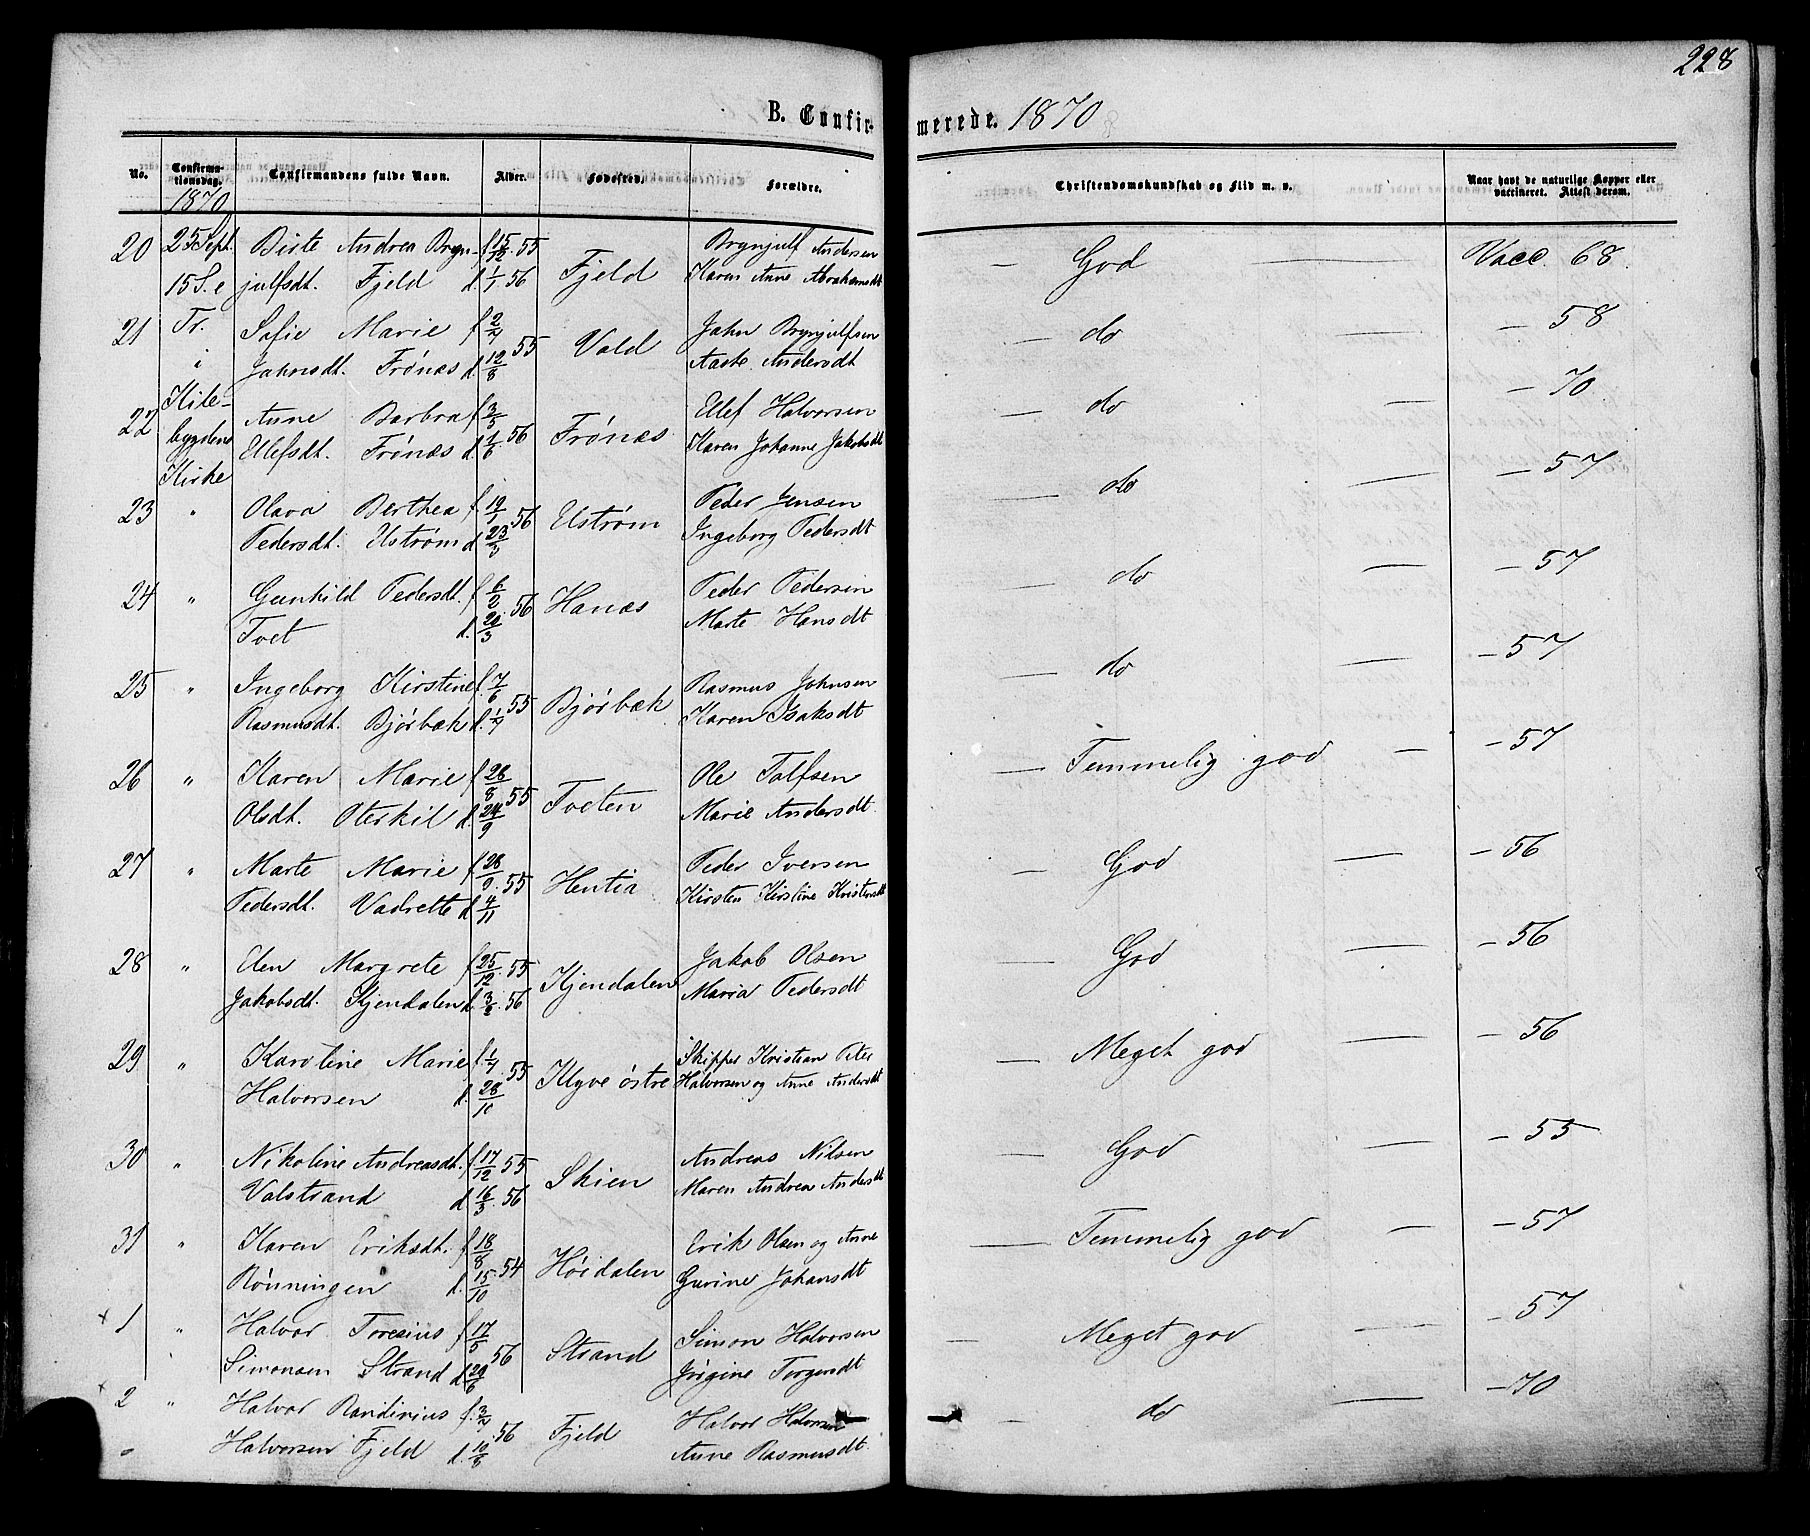 228
B. Confirmerede. 1870
No.
Confirmationsdag.
1870
Confirmandens fulde Navn.
Alder.
Fødested.
Forældre.
Christendomskundskab og Flid m. v.
Naar havt de naturlige Kopper eller vaccineret. Attest derom.
20 25 Sept. Birte Andrea Bryn- f. 15/12 55 Fjeld Brynjulf Andersen — God — Vacc. 68.
15 S. e julfsdt. Fjeld d. 1/1 56 Karen Anne Abrahamsdt
21 Tr. Sofie Marie f 2/7 55 Vold Jahn Brynjulfsen — do — — 58
i Jahnsdt. Frønæs d. 12/8 Aaste Andersdt
22 Kile- Anne Barbra f 3/5 56 Frønæs Ellef Halvorsen — do — — 70
bygdens Ellefsdt. Frønæs d. 1/6 Karen Johanne Jakobsdt
Kirke
23 " Olava Berthea f. 19/1 56 Elstrøm Peder Jensen — do — — 57
Pedersdt. Elstrøm d. 23/3 Ingeborg Pedersdt
24 " Gunhild Pedersdt. f. 6/2 56 Hanæs Peder Pedersen — do — — 57
Tvet d. 20/3 Marte Hansdt
25 " Ingeborg Kirstine f. 7/6 55 Bjørbæk Rasmus Johnsen — do — — 57
Rasmusdt. Bjørbæk d. 1/7 Karen Isaksdt
26 " Karen Marie f 28/8 55 Tveten Ole Tolfsen — Temmelig god — — 57
Olsdt. Oterkil d. 24/9 Marie Andersdt.
27 " Marte Marie f 28/9 55 Hentia Peder Iversen — God — — 56
Pedersdt. Vadrette d 4/11 Kirsten Kirstine Kristensdt
28 " Elen Margrete f 25/12 55 Kjendalen Jakob Olsen — God — — 56
Jakobsdt. Kjendalen d. 3/2 56 Maria Pedersdt
29 " Karoline Marie f 1/7 55 Klyve østre Skipper Kristian Peter — Meget god — — 56
Halvorsen d. 28/10 Halvorsen og Anne Andersdt
30 " Nikoline Andreasdt. f. 17/12 55 Skien Andreas Nilsen — God — — 55
Valstrand d. 16/3 56 Maren Andrea Andersdt
31 " Karen Eriksdt. f. 18/8 54 Høidalen Erik Olsen og Anne — Temmelig god — — 57
Rønningen d. 15/10 Gurine Johansdt
+ 1 " Halvor Toresius f 17/5 56 Strand Simon Halvorsen — Meget god — — 57
Simonsen Strand d 29/6 Jørgine Torgersdt
+ 2 " Halvor Randinius f. 3/7 56 Fjeld Halvor Halvorsen — do — — 70
Halvorsen Fjeld d. 10/8 Anne Rasmusdt.